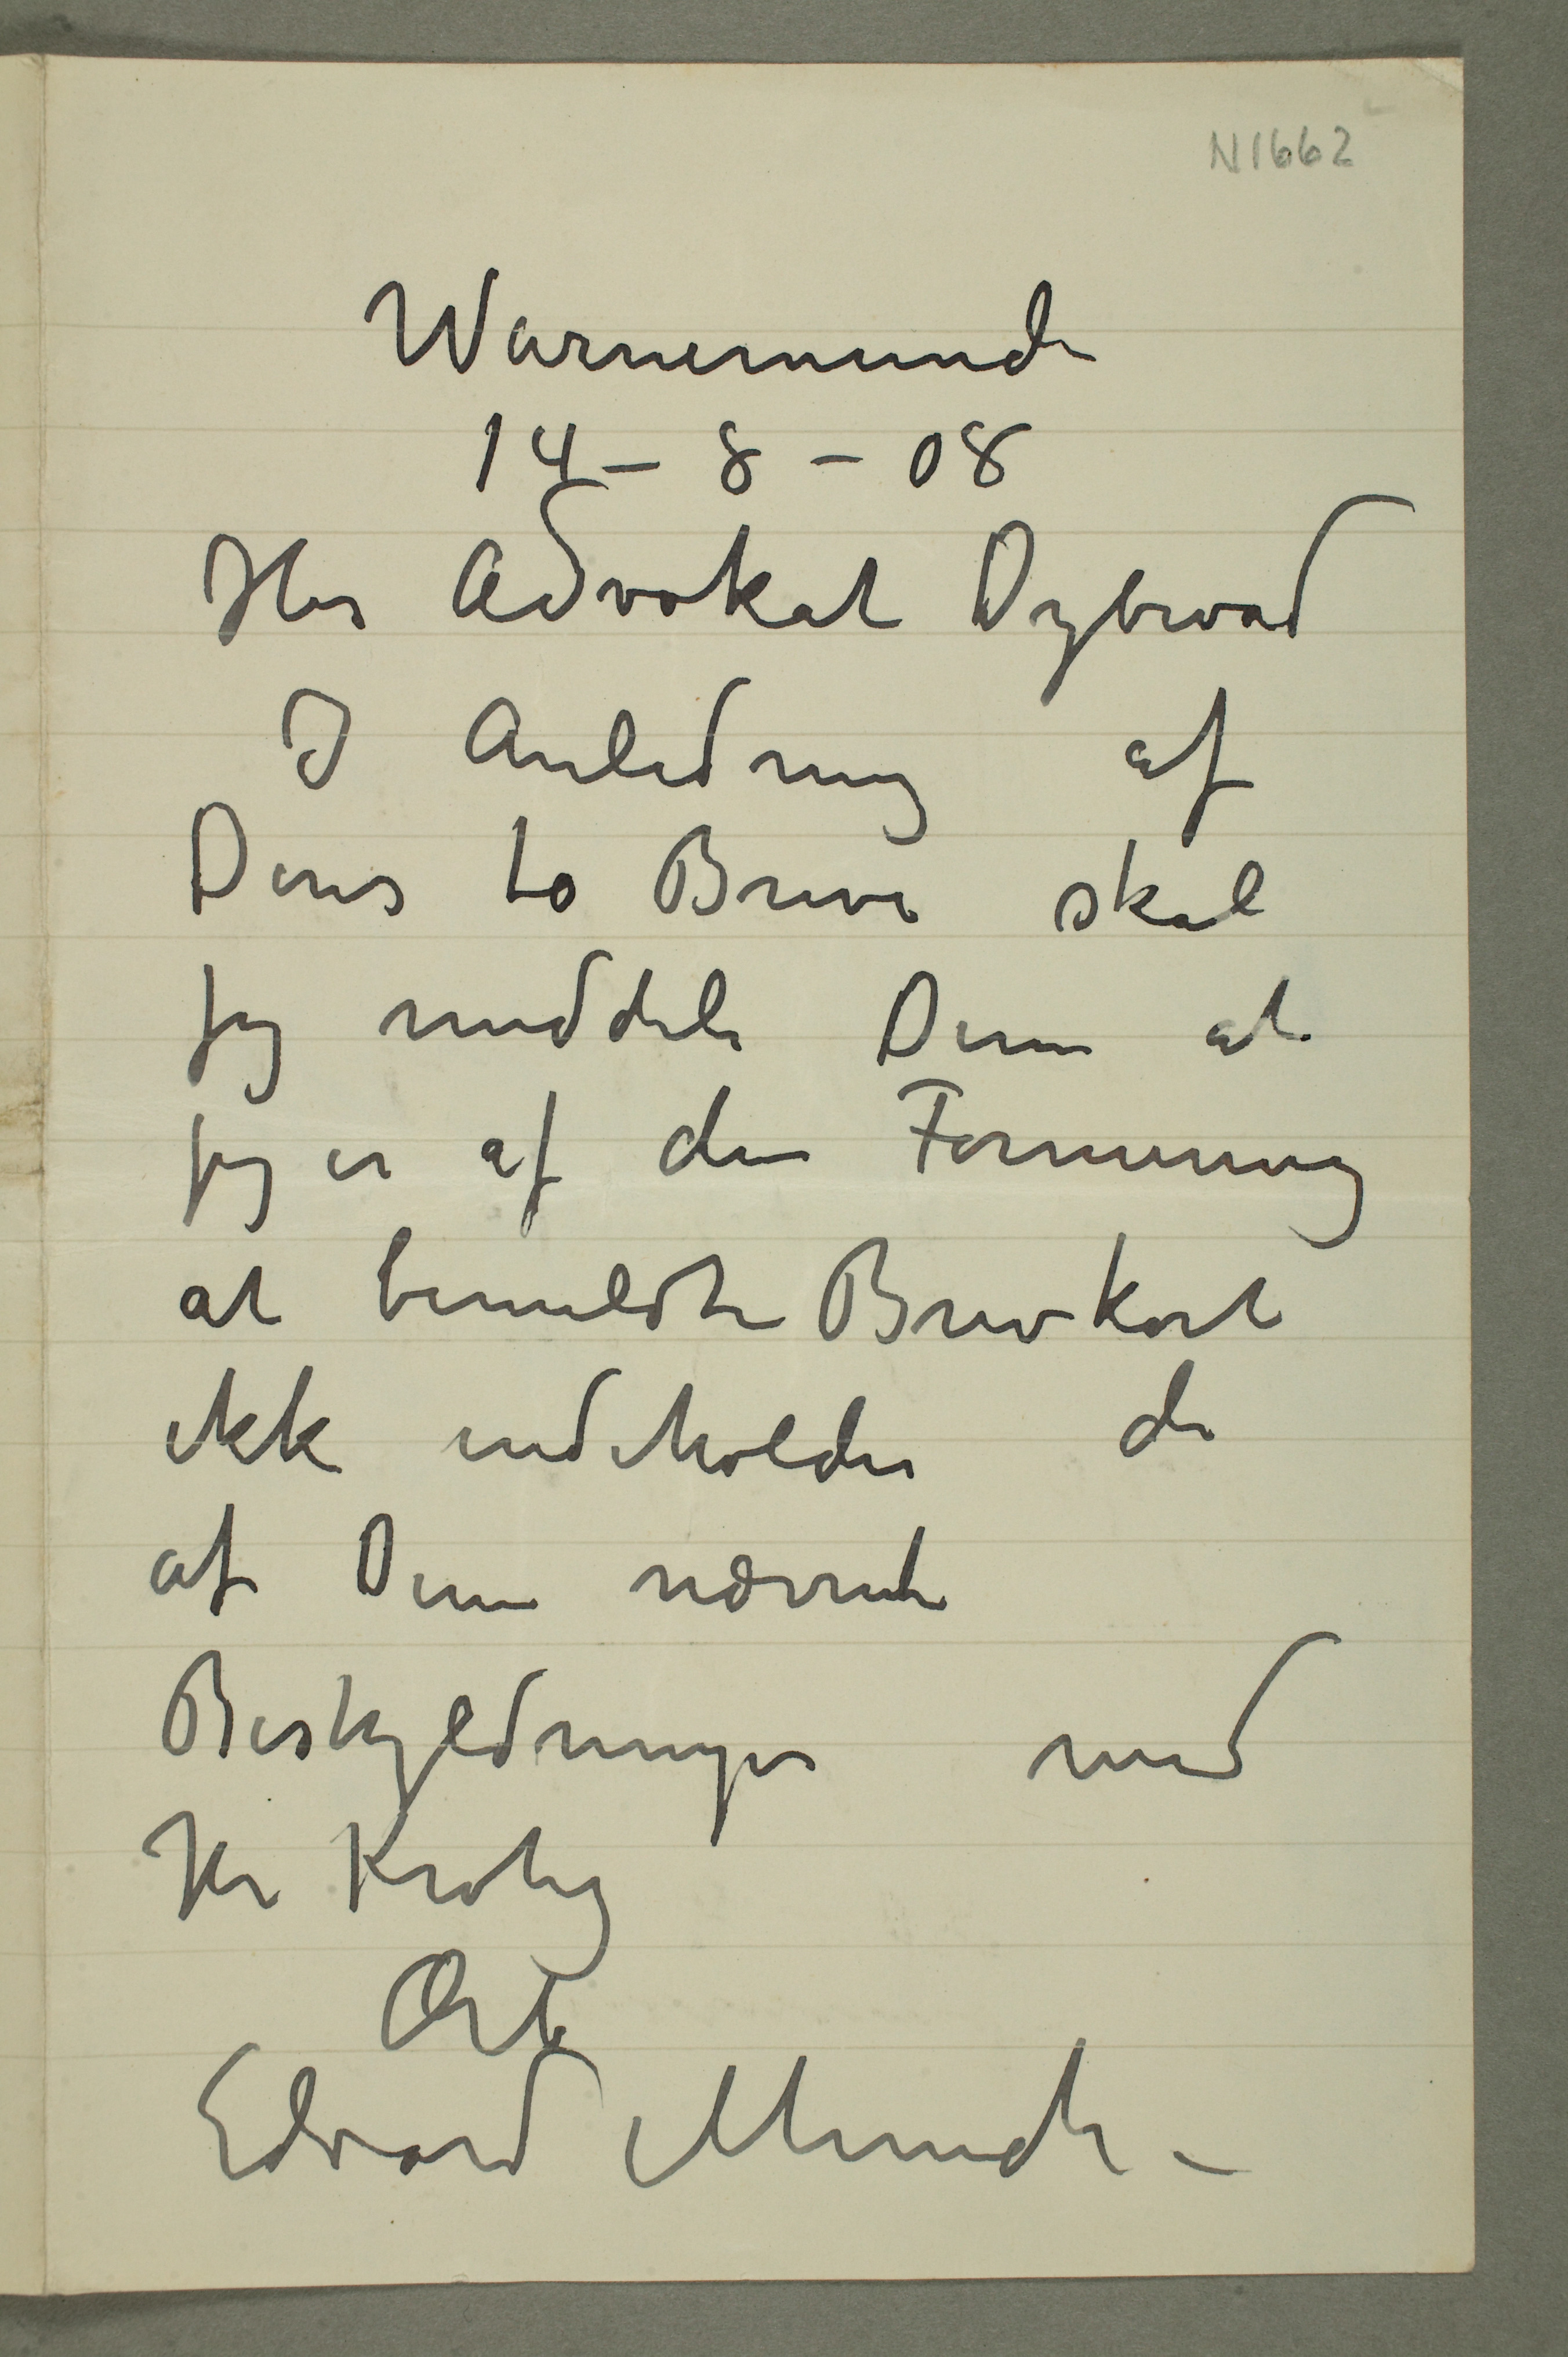 N1662
Warnemunde
14 – 8 – 08
Herr Advokat Dybwad
I Anledning af
Deres to Breve skal
jeg meddele Dem at
jeg er af den Formening
at bemeldte Brevkort
ikke indeholder de
af Dem nævnte
Beskyldninger mod
Hr Krohg
Ærb
Edvard Munch –